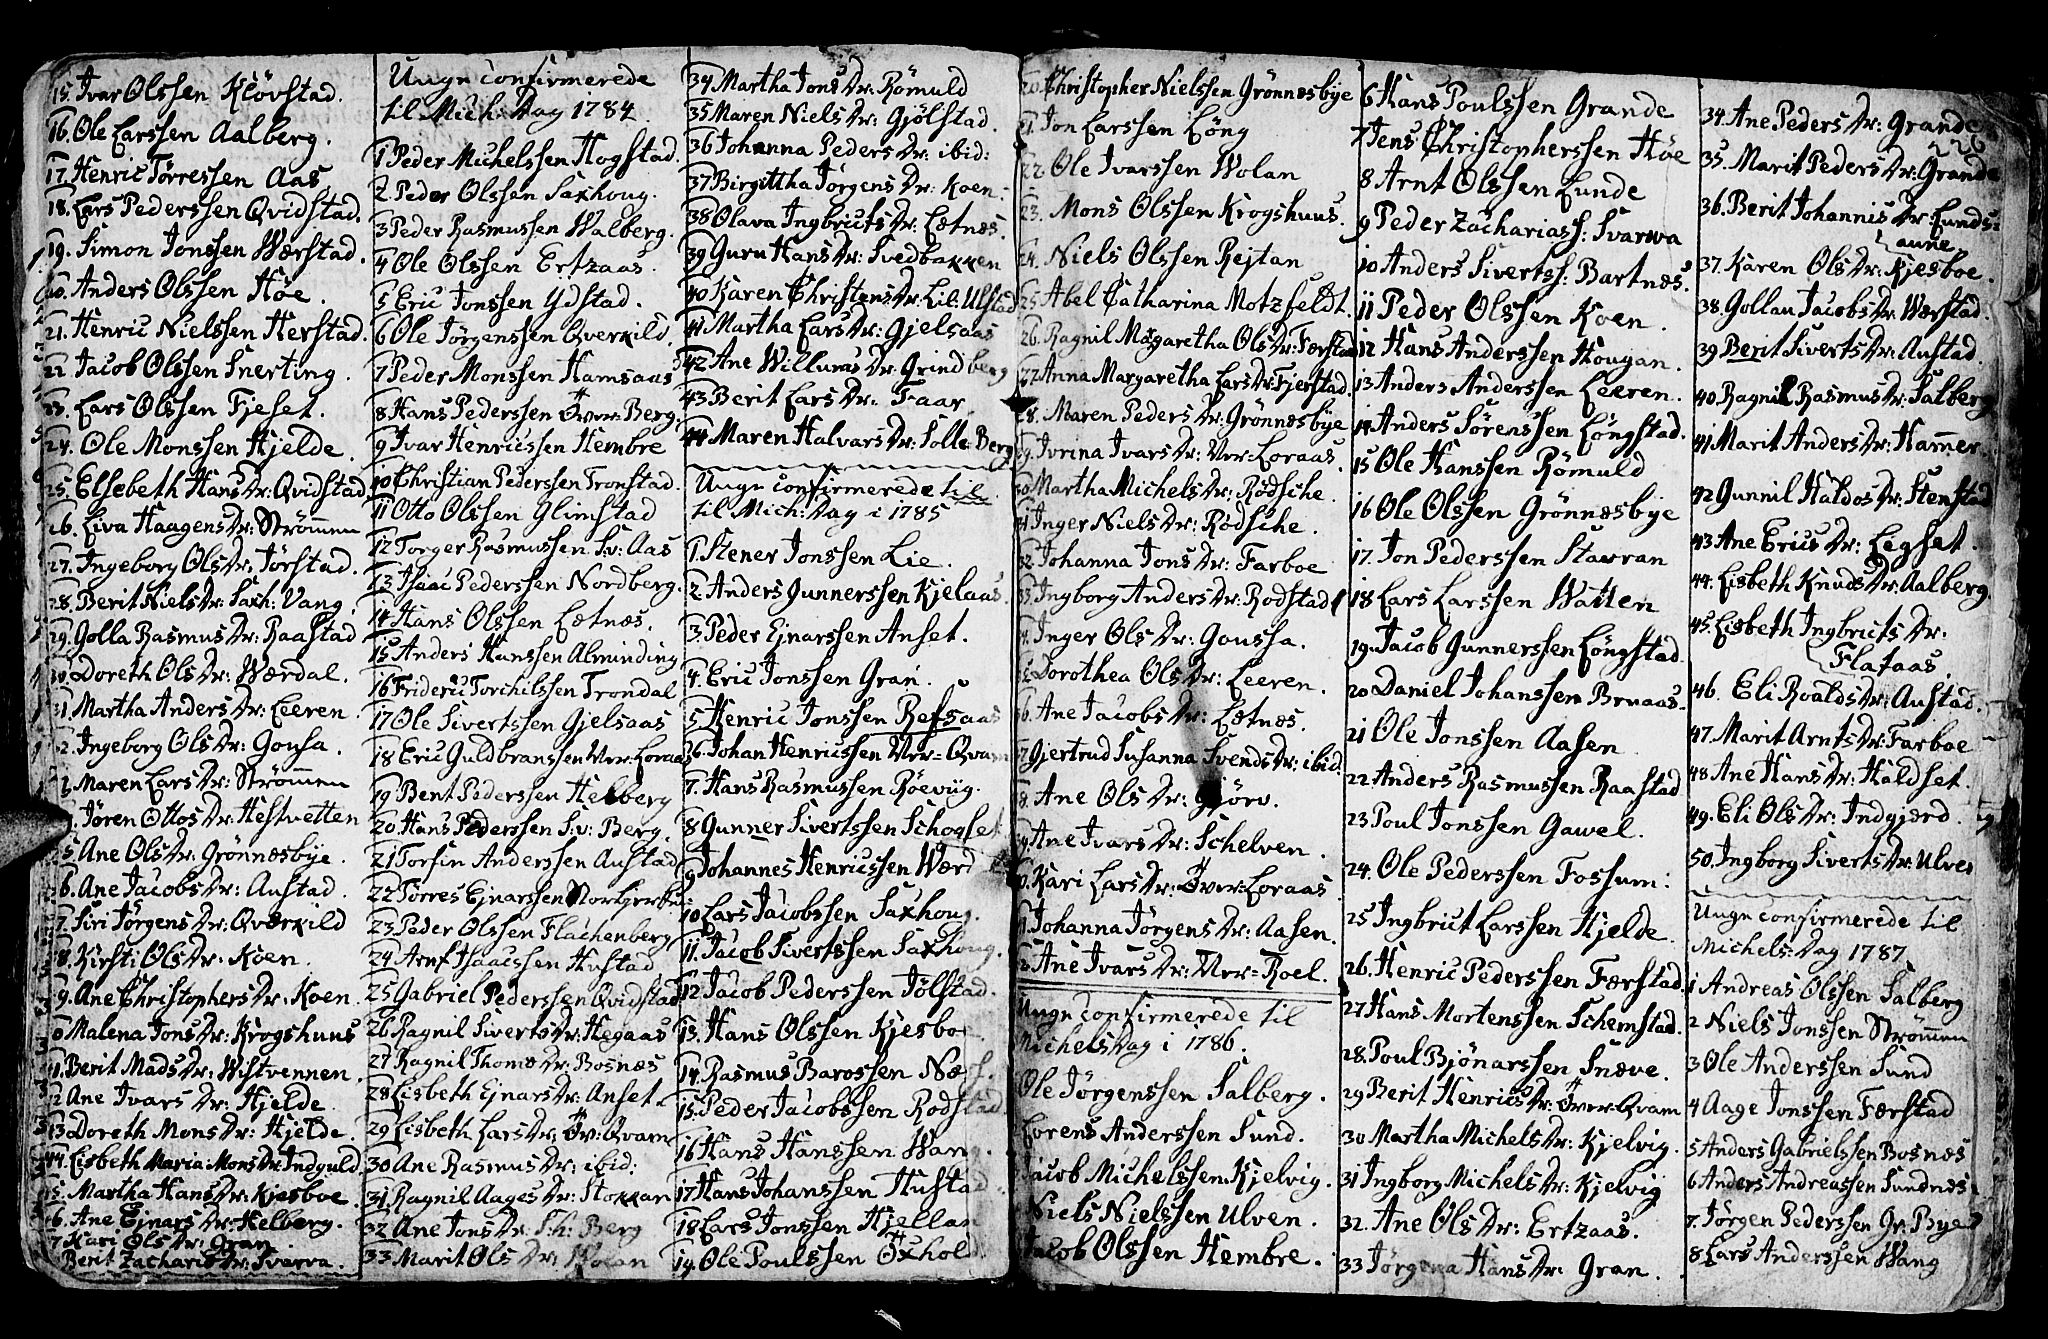 15. Ivar Olssen Klövstad.
16. Ole Larssen Aalberg.
17. Henric Törressen Aas
18. Lars Pederssen Qvidstad.
19. Simon Jonssen Wærstad.
20. Anders Olssen Höe.
21. Henric Nielssen Herstad.
22. Jacob Olssen Snerting.
23. Lars Olssen Fjeset.
24. Ole Monssen Hjelde.
25. Elsebeth Hans Dr: Qvidstad
26. Liva Haagens Dr: Strömmen
27. Ingeborg Ols Dr: Törstad.
28. Berit Niels Dr: Saxh: Vang.
29. Golla Rasmus Dr: Raastad
30. Doreth Ols Dr: Wærdal.
31. Martha Anders Dr: Leeren
2. Ingeborg Ols Dr: Gousa.
Maren Lars Dr: Strömmen
Jören Ottos Dr: Hestvetten
5. Ane Ols Dr: Grönnæsbye.
6. Ane Jacobs Dr: Austad.
7. Siri Jörgens Dr: Qværkild
8. Kirsti Ols Dr: Koen.
9. Ane Christophers Dr: Koen.
0 Malena Jons Dr: Krogshuus
1. Berit Mads Dr: Wistvennen.
2 Ane Ivars Dr: Hjelde.
43 Doreth Mons Dr: Hjelde.
44. Lisbeth Maria Mons Dr: Indguld
5. Martha Hans Dr: Kjesboe
6. Ane Ejnars Dr: Helberg.
7 Kari Ols Dr: Gran
Berit Zacharis Dr: Svarva.
Ungn confirmerede
til Mich: Dag 1784.
1 Peder Michelssen Hogstad.
2 Peder Olssen Saxhoug.
3 Peder Rasmussen Walberg.
4 Ole Olssen Ertzaas.
5 Eric Jonssen Ydstad.
6 Ole Jörgenssen Qverkild.
7 Peder Monssen Hamsaas
8 Hans Pederssen Över: Berg.
9 Ivar Henricssen Hembre
10 Christian Pederssen Tronstad.
11 Otto Olssen Glimstad
12 Torger Rasmussen Sv: Aas
13 Isaac Pederssen Nordberg.
14 Hans Olssen Lætnæs.
15 Anders Hanssen Alminding
16 Frideric Torchilssen Trondal
17 Ole Sivertssen Gjelsaas
18 Eric Guldbranssen Ner: Loraas
19 Bent Pederssen Helberg
20 Hans Pederssen Sv: Berg.
21 Torfin Anderssen Austad
22 Törres Ejnarssen
23 Peder Olssen Flachenberg
24 Arnt Isaacssen Hustad
25 Gabriel Pederssen Qvidstad
26 Ragnil Siverts Dr: Hegaas
27 Ragnil Thomæ Dr: Bosnæs
28 Lisbeth Ejnars Dr: Anset.
29 Lisbeth Lars Dr: Öv: Qvam
30 Ane Rasmus Dr: ibid:
31. Ragnil Aages Dr: Stokkan
32 Ane Jons Dr: Sh: Berg
33 Marit Ols Dr: Wolan
34 Martha Jons Dr: Römuld
35 Maren Niels Dr: Gjölstad.
36 Johanna Peders Dr: ibid:
37 Birgittha Jörgens Dr: Koen.
38 Olava Ingbricts Dr: Lætnæs.
39 Guru Hans Dr: Svedbakken
40 Karen Christens Dr: Lil: Ulstad
41 Martha Lars Dr: Gjelsaas
42 Ane Willums Dr: Grindberg
43 Berit Lars Dr: Faar
44 Maren Halvars Dr: Solle: Berg
Ungn confirmerede til
til Mich: Dag i 1785
1. Stener Jonssen Lie.
2 Anders Gunnerssen Kjelaas.
3. Peder Ejnarssen Anset.
4. Eric Jonssen Gran.
5 Henric Jonssen Refsaas
6 Johan Henricssen Ner=Qvam
7. Hans Rasmussen Röeviig.
8 Gunner Sivertssen Schogset
9 Johannes Henricssen Wærd
10 Lars Jacobssen Saxhoug.
11. Jacob Sivertssen Saxhoug.
12 Jacob Pederssen Jölstad.
13. Hans Olssen Kjesboe
14. Rasmus Barossen Næss.
15. Peder Jacobssen Rodstad.
16 Hans Hanssen Wang.
17 Hans Johanssen Hustad.
18 Lars Jonssen Hjellan
19. Ole Poulssen Öxhold.
20. Christopher Nielssen Grönnæsbye
21. Jon Larssen Löng
22. Ole Ivarssen Wolan
23. Mons Olssen Krogshuus.
24. Niels Olssen Rejtan
25. Abel Catharina Motzfeldt.
26. Ragnil Margaretha Ols Dr: Færstad
27 Anna Margaretha Lars Dr: Fjerstad.
28. Maren Peders Dr: Grönnæsbye
29. Ivrina Ivars Dr: Ner=Loraas.
30 Martha Michels Dr: Rodsche.
31 Inger Niels Dr: Rodsche.
32. Johanna Jons Dr: Farboe
33. Ingborg Anders Dr: Rodstad
4. Inger Ols Dr: Goussa.
5. Dorothea Ols Dr: Leeren.
6. Ane Jacobs Dr: Lætnæs.
7 Gjertrud Susanna Svends Dr: ibid.
8. Ane Ols Dr: Gjörv.
9 Ane Ivars Dr: Schelven.
0. Kari Lars Dr: Över: Loraas
1 Johanna Jörgens Dr: Aasen.
2 Ane Ivars Dr: Ner=Roel.
Ungn confirmerede til
Michels Dag i 1786.
Ole Jörgenssen Salberg.
Lorens Anderssen Sund.
Jacob Michelssen Kjelvig.
Niels Nielssen Ulven.
Jacob Olssen Hembre.
6 Hans Poulssen Grande
7 Jens Christopherssen Höe
8 Arnt Olssen Lunde
9 Peder Zachariass: Svarwa
10 Anders Sivertss: Bartnæs.
11 Peder Olssen Koen.
12 Hans Anderssen Hougan.
13 Anders Anderssen Leeren.
14 Anders Sörenssen Löngstad.
15 Ole Hanssen Römuld
16 Ole Olssen Grönnæsbye
17. Jon Pederssen Stawran
18 Lars Larssen Watten
19. Jacob Gunnerssen Löngstad.
20 Daniel Johanssen Bruaas.
21 Ole Jonssen Aasen
22 Anders Rasmussen Raastad
23 Poul Jonssen Gawel.
24. Ole Pederssen Fossum:
25 Ingbrict Larssen Hjelde.
26. Henric Pederssen Færstad.
27 Hans Mortenssen Schemstad.
28. Poul Bjönarssen Snæve.
29 Berit Henrics Dr: Över Qvam
30 Martha Michels Dr: Kjelvig.
31 Ingborg Michels Dr: Kjelvig
32. Ane Ols Dr: Ertzaas.
33 Jörgena Hans Dr: Gran.
34. Ane Peders Dr: Grande
226
35. Marit Peders Dr: Grande
36. Berit Johannis Dr: Lunds=
aune
37. Karen Ols Dr: Kjesboe.
38. Gollau Jacobs Dr: Wærstad.
39 Berit Siverts Dr: Austad.
40 Ragnil Rasmus Dr: Salberg
41 Marit Anders Dr: Hammer
42 Gunnil Haldos Dr: Stenstad
43 Ane Erics Dr: Ligset.
44. Lisbeth Knuds Dr: Aalberg
45. Lisbeth Ingbricts Dr:
Flataas.
46. Eli Roalds Dr: Austad.
47. Marit Arnts Dr: Farboe
48 Ane Hans Dr: Haldset.
49. Eli Ols Dr: Indgjærd
50. Ingborg Siverts Dr: Ulven
Ungn confirmerede til
Michels: Dag 1787.
1 Andreas Olssen Salberg
2 Niels Jonssen Strömmen
3 Ole Anderssen Sund
4 Aage Jonssen Færstad
5 Anders Gabrielssen Bosnæs
6 Anders Andreassen Sundnæs.
7. Jörgen Pederssen Gr: Bye
8 Lars Anderssen Wang